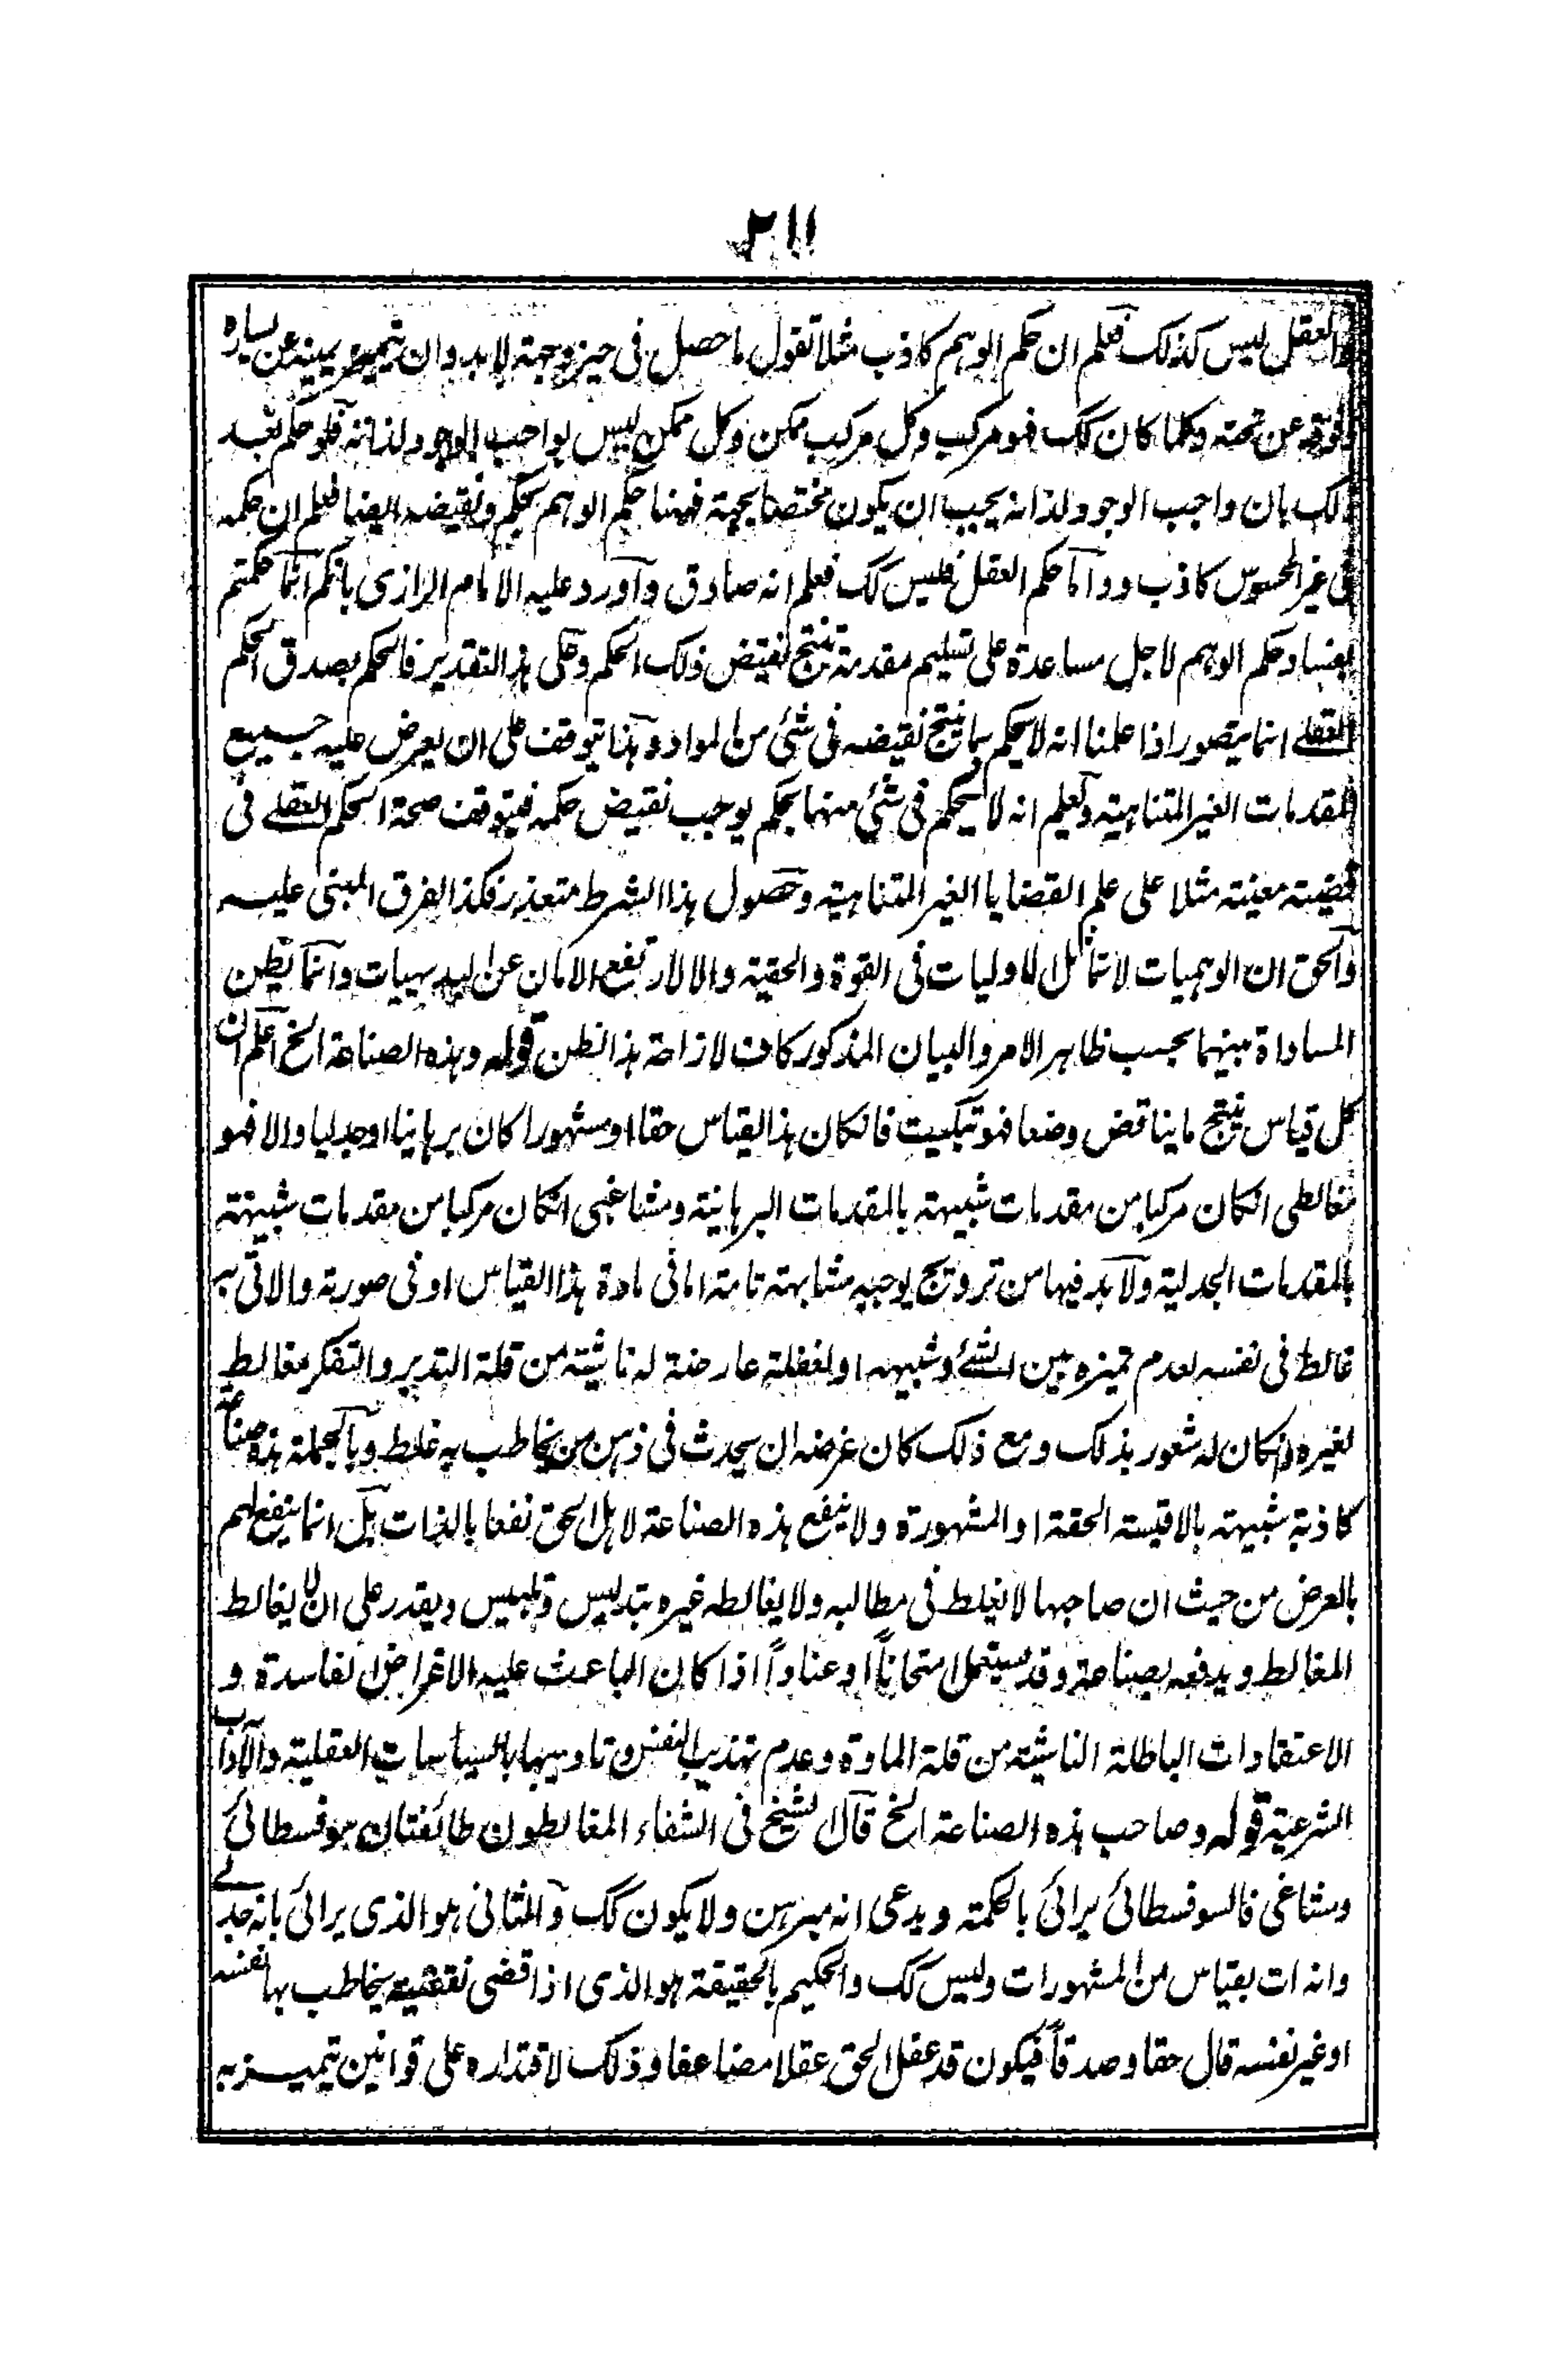 ٢١١
والعقل ليس كذلك فعلم ان حكم الوهم كاذب مثلا تقول ما حصل فى حيز وجهة لابد وان يتميز يمينه عن يساره
وفوقه عن تحته وكلما كان كك فهو مركب وكل مركب ممكن وكل ممكن ليس بواجب الوجود لذاته فلو حكم بعد
ذلك بان واجب الوجود لذاته يجب ان يكون مختصا بجهة فههنا حكم الوهم بحكم ونقيضه ايضا فعلم ان حكمه
فى غير المحسوس كاذب واما حكم العقل فليس كك فعلم انه صادق واورد عليه الامام الرازى بانكم انما حكمتم
بفساد حكم الوهم لاجل مساعدة على تسليم مقدمة تنتج نقيض ذلك الحكم وعلى هذا التقدير فالحكم بصدق الحكم
العقلے انما يتصور اذا علمنا انه لا يحكم بما ينتج نقيضه فى شئ من المواد وهذا يتوقف على ان يعرض عليه جميع
المقدمات الغير المتناهية ونعلم انه لا يحكم فى شئ منها بحكم يوجب نقيض حكمه فيتوقف صحة الحكم العقلے فى
قضية معينة مثلا على علم القضايا الغير المتناهية وحصول هذا الشرط متعذر فكذا الفرق المبنى عليه
والحق ان الوهميات لا تماثل الاوليات فى القوة والحقية والا لارتفع الامان عن البديهيات وانما يظن
المساواة بينهما بحسب ظاهر الامر والبيان المذكور كاف لازاحة هذا الظن قوله وهذه الصناعة الخ اعلم ان
كل قياس ينتج ما يناقض وضعا فهو تبكيت فانكان هذا القياس حقا او مشهورا كان برهانيا او جدليا والا فهو
مغالطى انكان مركبا من مقدمات شبيهة بالمقدمات البرهانية ومشاغبى انكان مركبا من مقدمات شبيهة
بالمقدمات الجدلية ولابد فيها من ترويج يوجبه مشابهة تامة اما فى مادة هذا القياس او فى صورته والاتى به
غالط فى نفسه لعدم تميزه بين الشئ وشبيهه او لغفلة عارضة له ناشئة من قلة التدبر والتفكر مغالط
لغيره انكان له شعور بذلك ومع ذلك كان غرضه ان يحدث فى ذهن من يخاطب به غلط وبالجملة هذه صناعة
كاذبة شبيهة بالاقيسة الحقة او المشهورة ولا ينفع هذه الصناعة لاهل الحق نفعا بالذات بل انما ينفع لهم
بالعرض من حيث ان صاحبها لا يغلط فى مطالبه ولا يغالطه غيره بتدليس وتلبيس ويقدر على ان لا يغالط
المغالط ويدفعه بصناعة وقد يستعمل امتحاناً او عناداً اذا كان الباعث عليه الاغراض الفاسدة و
الاعتقادات الباطلة الناشية من قلة المادة وعدم تهذيب النفس وتاديبها بالسياسات العقلية والآداب
الشرعية قوله وصاحب هذه الصناعة الخ قال الشيخ فى الشفاء المغالطون طائفتان سوفسطائى
ومشاغبى فالسوفسطائى يرائى بالحكمة ويدعى انه مبرهن ولا يكون كك والثانى هو الذى يرائى بانه جدلے
وانه ات بقياس من المشهورات وليس كك والحكيم بالحقيقة هو الذى اذا قضى بقضية يخاطب بها نفسه
او غير نفسه قال حقا وصدقاً فيكون قد عقل الحق عقلا مضاعفا وذلك لاقتداره على قوانين تميز به